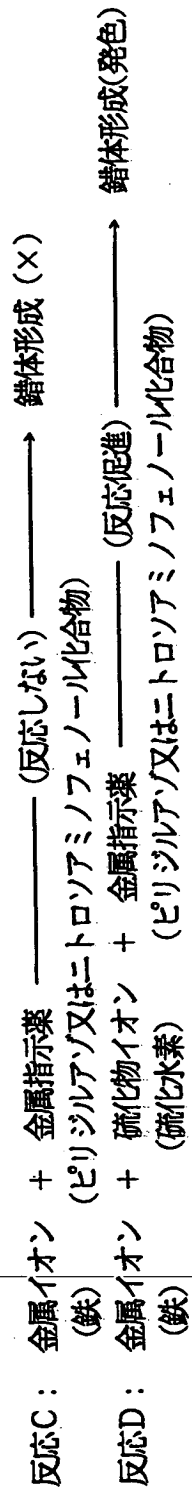 反応C： 金属イオン ＋ 金属指示薬 ――― (反応しない) ――→ 錯体形成 (×)
(鉄) (ピリジルアゾ又はニトロソアミノフェノール化合物)
反応D： 金属イオン ＋ 硫化物イオン ＋ 金属指示薬 ――― (反応促進) ――→ 錯体形成(発色)
(鉄) (硫化水素) (ピリジルアゾ又はニトロソアミノフェノール化合物)